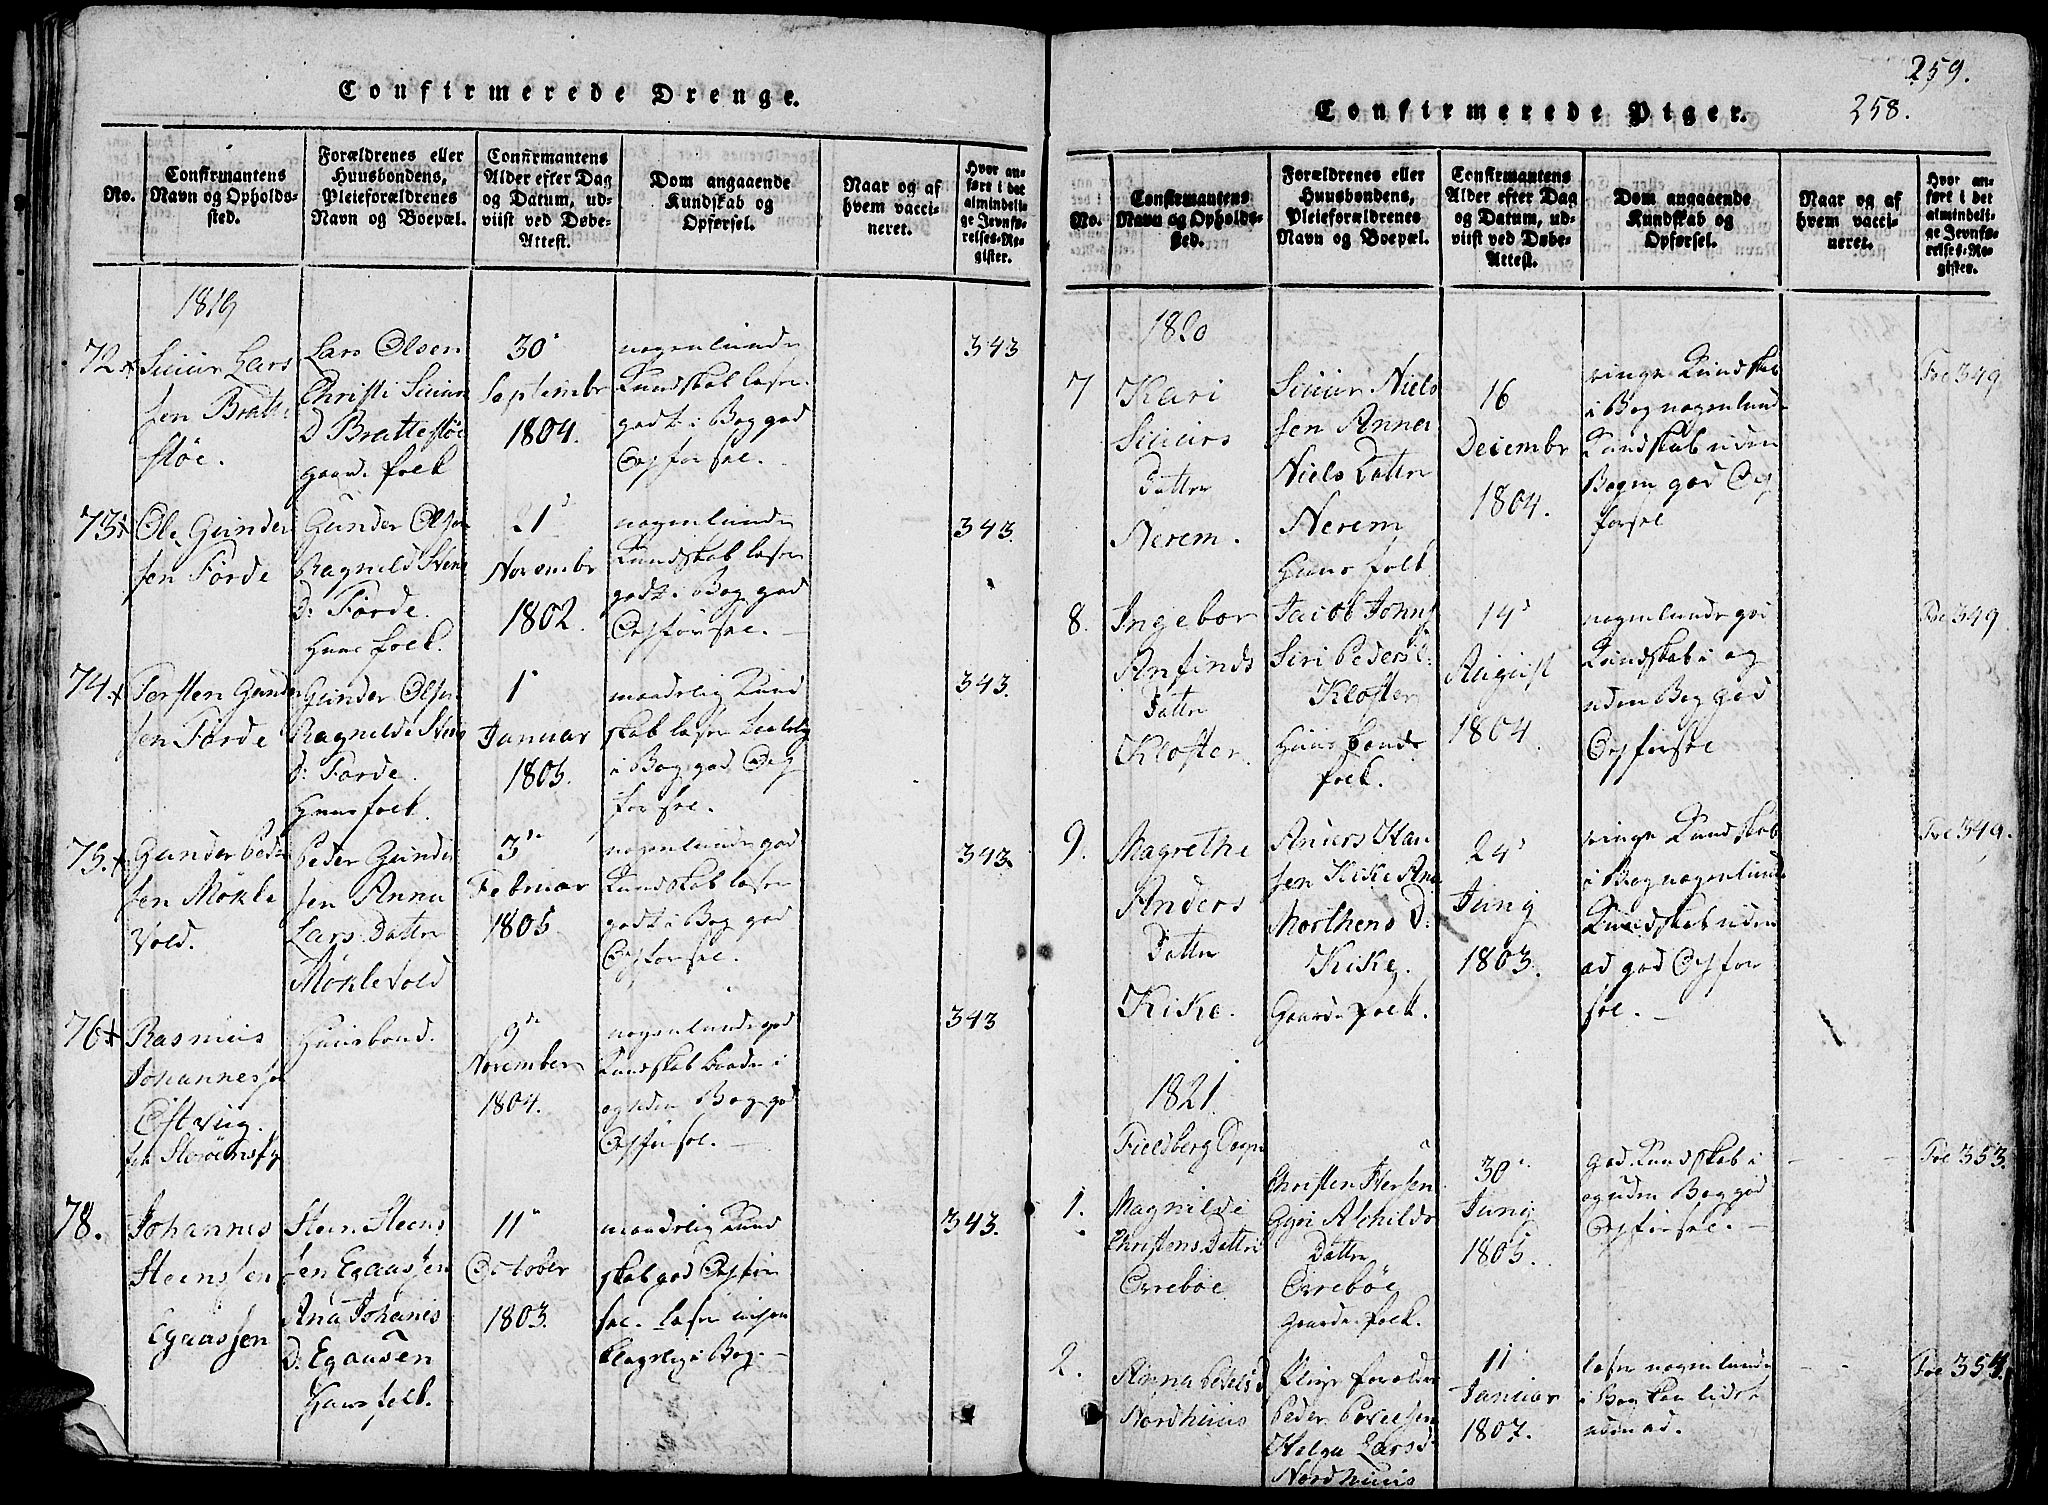 Confirmerede Drenge.
No.
Confirmantens
Navn og Opholds-
sted.
Forældrenes eller
Huusbondens,
Pleieforældrenes
Navn og Boepæl.
Confirmantens
Alder efter Dag
og Datum, ud-
viist ved Døbe-
Attest.
Dom angaaende
Kundskab og
Opførsel.
Naar og af
hvem vacci-
neret.
Hvor an-
ført i det
almindeli-
ge Jevnfø-
relses-Re-
gister.
1819
72
Siuur Lars
sen Bratte
støe.
Lars Olsen
Christi Siuur
D Brattestøe
gaard folk
30
Septembr
1804.
nogenlunde
Kundskab læser
godt i Bog god
Opførsel.
343
73
Ole Gunder
sen Førde
Gunder Olsen
Ragnild Stens
D: Førde.
Huus folk.
21
Novembr
1802.
nogenlunde
Kundskab læser
godt i Bog god
Opførsel.
343.
74
Torsten Gunder
sen Førde
Gunder Olsen
Ragnilde Stens
D: Førde.
Huusfolk.
1
Januar
1805.
maadelig Kund
skab læser
i Bog god Op
førsel.
343.
75.
Gunder Peder
sen Møkle
Vold.
Peder Gunder
sen Anna
Lars Datter
Møklevold
3
Februar
1805
nogenlunde god
Kundskab læser
godt i Bog god
Opførsel.
343
76
Rasmus
Johannessen
Huusbond.
9
November
1804.
nogenlunde god
Kundskab baade i
og uden Bog god
Opførsel.
343
78.
Johannes
Steensen
Egaassen
Steen Steens
sen Egaassen
Ana Johanis
D: Egaasen
Huus folk.
11
October
1803.
maadelig Kund
skab god Opfør
sel. læser
i Bog.
343.
259.
258.
Confirmerede Piger.
No.
Confirmantens
Navn og Opholds-
sted.
Forældrenes eller
Huusbondens,
Pleieforældrenes
Navn og Boepæl.
Confirmantens
Alder efter Dag
og Datum, ud-
viist ved Døbe-
Attest.
Dom angaaende
Kundskab og
Opførsel.
Naar og af
hvem vacci-
neret.
Hvor an-
ført i det
almindeli-
ge Jevnfø-
relses-Re-
gister.
1820
7
Kari
Siuurs
Datter
Nerem.
Siuur Niels
sen Anna
Niels Datter
Nerem
Huus folk
16
Decembr
1804.
ringe Kundskab
i Bog nogenlunde
Kundskab uden
Bogen god Op
førsel
Foe 349
8.
Ingebor
Anfinds
Datter
Kloster.
Jacob Johns
Siri Peders D:
Kloster
Huusbonds
folk.
14
August
1804.
nogenlunde god
Kundskab i og
uden Bog god
Opførsel
Foe 349
9.
Magrethe
Anders
Datter
Kike.
Anders Han
sen Kike Ana
Morthens D:
Kike.
Gaarde folk.
24
Juny
1803.
ringe Kundskab
i Bog nogenlunde
Kundskab uden
ad god Opfør
sel.
Foe 349.
1821.
Fieldberg Sogn
1.
Magnilde
Christens Dattr
Orrebøe
Christen Iversen
Gyri Aschilds
Datter
Orrebøe
Gaarde folk.
30
Juny
1805.
god Kundskab i
og uden Bog god
Opførsel.
Foe 353.
2.
Anna Povels D
Nordhuus
Pleie forældre
Peder Povelsen
Helga Larsd
Nordhuus
11
Januar
1807.
læser nogenlunde
i Bog kan lidet
uden ad.
Foe 354.